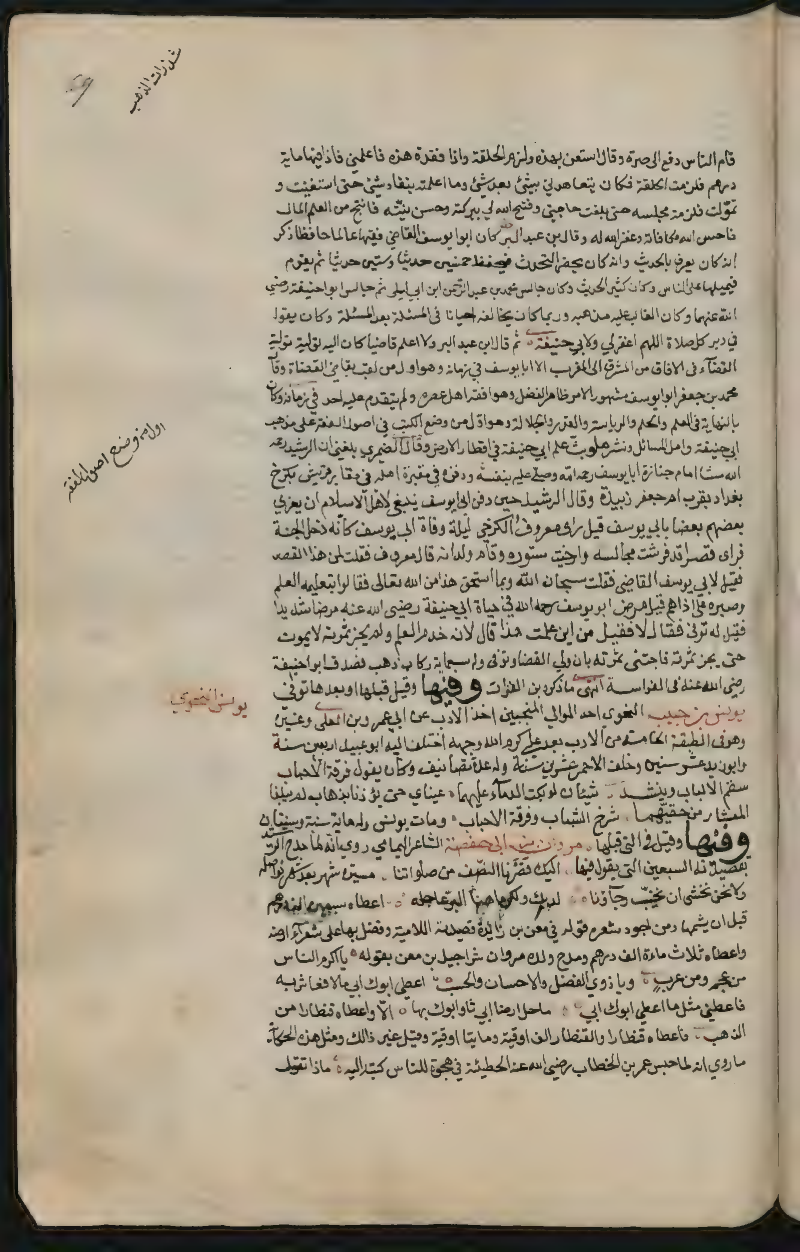 شذرات الذهب
قام الناس دفع الى صرة وقال استعن بهذه والزم الحلقة واذا نفدة هذه فاعلمني فاذا فيها ماية
درهم فلزمت الحلقة فكان يتعاهدني بشئ بعد شئ وما اعلمته بنفاد شئ حتى استغنيت و
تموّلت فلزمة مجلسه حتى بلغت حاجتي وفتح الله لي ببركته وحسن نيته فانتج من العلم المال
فاحسن الله مكافاته وغفر الله له وقال بن عبد البر كان ابو يوسف القاضي فقيها عالما حافظا ذكر
انه كان يعرف بالحديث وانه كان يحضر المحدث فيحفظ خمسين حديثا وستين حديثا ثم يقوم
فيمليها على الناس وكان كثير الحديث وكان جالس محمد بن عبد الرحمن ابن ابي ليلى ثم جالس ابو حنيفة رضي
الله عنهما وكان الغالب عليه مذهبه وربما كان يخالفه احيانا في المسئلة بعد المسئلة وكان يقول
في دبر كل صلاة اللهم اغفر لي ولابي حنيفة ثم قال ابن عبد البر ولا اعلم قاضيا كان اليه تولية تولية
القضاء في الافاق من المشرق الى المغرب الا ابا يوسف في زمانه وهو اول من لقب بقاضي القضاة وقال
محمد بن جعفر ابو يوسف مشهور الامر ظاهر الفضل وهو افقه اهل عصره ولم يتقدم عليه احد في زمانه وكان
بالنهاية في العلم والحلم والرياسة والقدر والجلالة وهو اول من وضع الكتب في اصول الفقه على مذهب
ابي حنيفة وامل المسائل ونشرها وبث علم ابي حنيفة في اقطار الارض وقال الصيمري بلغني ان الرشيد رحمه
الله مشا امام جنازة ابا يوسف رحمه الله وصلى عليه بنفسه ودفنه في مقبرة اهله في مقابر قريش بكرخ
بغداد بقرب ام جعفر زبيدة وقال الرشيد حين دفن ابي يوسف ينبغي لاهل الاسلام ان يعزي
بعضهم بعضا بابي يوسف قيل رؤى معروف الكرخي ليلة وفاة ابي يوسف كانه دخل الجنة
فراى قصرا قد فرشت مجالسه وارخيت ستوره وقام ولدانه قال معروف فقلت لمن هذا القصر
فقيل لابي يوسف القاضي فقلت سبحان الله وبما استحق هذا من الله تعالى فقالوا بتعليمه العلم
وصبره على اذاهم قيل مرض ابو يوسف رحمه الله في حياة ابي حنيفة رضي الله عنه مرضا شديدا
فقيل له توفى فقال لا فقيل من اين علمت هذا قال لانه خدم العلم ولم يجن ثمرته لا يموت
حتى يجن ثمرته فاجتنى ثمرته بان ولي القضا وتوفى وله سبعماية ركاب ذهب فصدق ابو حنيفة
رضي الله عنه في الفراسة انتهى ما ذكره بن الفرات وفيها وقيل قبلها او بعدها توفى
يونس بن حبيب النحوي احد الموالي المنجبين اخذ الادب عن ابي عمرو بن العلى وغيره
وهو في الطبقة الخامسة من الادب بعد علي كرم الله وجهه اختلف اليه ابو عبيدة اربعين سنة
وابو زيد عشر سنين وخلف الاحمر عشرين سنة وله عدة تصانيف وكان يقول فرقة الاحباب
سقم الالباب وينشد شيئان لو بكت الدماء عليهما عيناي حتى يؤذنا بذهاب لم يبلغا
المعشار من حقيهما شرخ الشباب وفرقة الاحباب ومات يونس وله ماية سنة وسنتان
وفيها وقيل في التي قبلها مروان بن ابي حفصة الشاعر اليمامي روي انه لما مدح الرشيد
بقصيدته السبعين التي يقول فيها اليك قصرنا النصف من صلواتنا مسيرة شهر بعد شهر نواصله
ولا نحن نخشى ان يخيب رجاؤنا لديك ولكن اهنا البر عاجله اعطاه سبعين الف درهم
قبل ان يتمها ومن اجود شعره قوله في معن بن زايدة قصيدته اللامية وفضل بها على شعراء زمنه
واعطاه ثلاث ماءة الف درهم ومدح ولده مروان شراحيل بن معن بقوله يا اكرم الناس
من عجم ومن عرب ويا ذوي الفضل والاحسان والحسب اعطى ابوك ابي مالا فعاش به
فاعطني مثل ما اعطى ابوك ابي ما حل ارضا ابي ثاو ابوك بها الا واعطاه قنطارا من
الذهب فاعطاه قنطارا والقنطار الف اوقية ومايتا اوقية وقيل غير ذالك ومثل هذه الحكاية
ما روي انه لما حبس عمر بن الخطاب رضي الله عنه الحطيئة في هجوه للناس كتب اليه ماذا تقول
اول من وضع اصول الفقه
يونس النحوي